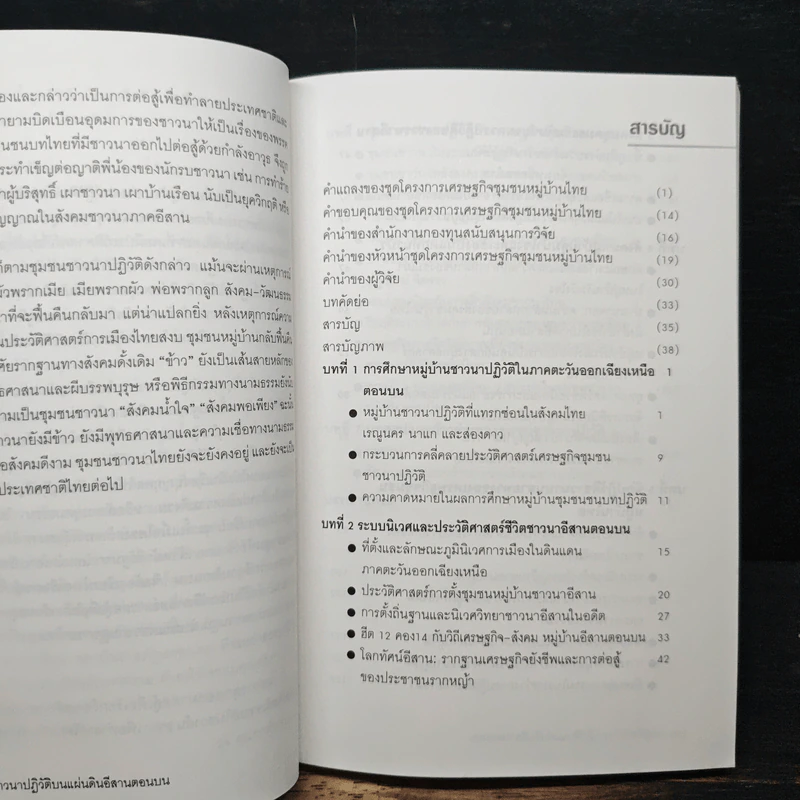 องและกล่าวว่าเป็นการต่อสู้เพื่อทำลายประเทศชาติและ
ายามบิดเบือนอุดมการของชาวนาให้เป็นเรื่องของพรรค
นชนบทไทยที่มีชาวนาออกไปต่อสู้ด้วยกำลังอาวุธ จึงถูก
ระทำเข็ญต่อญาติพี่น้องของนักรบชาวนา เช่น การทำร้าย
าผู้บริสุทธิ์ เผาชาวนา เผาบ้านเรือน นับเป็นยุควิกฤติ
ญญาณในสังคมชาวนาภาคอีสาน
ก็ตามชุมชนชาวนาปฏิวัติดังกล่าว แม้นจะผ่านเหตุการณ์
ผัวพรากเมีย เมียพรากผัว พ่อพรากลูก สังคม-วัฒนธรรม
าที่จะฟื้นคืนกลับมา แต่น่าแปลกยิ่ง หลังเหตุการณ์ความ
นประวัติศาสตร์การเมืองไทยสงบ ชุมชนหมู่บ้านกลับฟื้นคืน
ศัยรากฐานทางสังคมดั้งเดิม “ข้าว” ยังเป็นเส้นสายหลักของ
ธศาสนาและผีบรรพบุรุษ หรือพิธีกรรมทางนามธรรมยังมี
ามเป็นชุมชนชาวนา “สังคมน้ำใจ” “สังคมพอเพียง” ฉะนั้น
าวนายังมีข้าว ยังมีพุทธศาสนาและความเชื่อทางนามธรรม
อสังคมดีงาม ชุมชนชาวนาไทยยังจะยังคงอยู่ และยังจะเป็น
ประเทศชาติไทยต่อไป
าวนาปฏิวัติบนแผ่นดินอีสานตอนบน
สารบัญ
คำแถลงของชุดโครงการเศรษฐกิจชุมชนหมู่บ้านไทย (1)
คำขอบคุณของชุดโครงการเศรษฐกิจชุมชนหมู่บ้านไทย (14)
คำนำของสำนักงานกองทุนสนับสนุนการวิจัย (16)
คำนำของหัวหน้าชุดโครงการเศรษฐกิจชุมชนหมู่บ้านไทย (19)
คำนำของผู้วิจัย (30)
บทคัดย่อ (33)
สารบัญ (35)
สารบัญภาพ (38)
บทที่ 1 การศึกษาหมู่บ้านชาวนาปฏิวัติในภาคตะวันออกเฉียงเหนือ 1
ตอนบน
● หมู่บ้านชาวนาปฏิวัติที่แทรกซ่อนในสังคมไทย 1
เรณูนคร นาแก และส่องดาว
● กระบวนการคลี่คลายประวัติศาสตร์เศรษฐกิจชุมชน 9
ชาวนาปฏิวัติ
● ความคาดหมายในผลการศึกษาหมู่บ้านชุมชนชนบทปฏิวัติ 11
บทที่ 2 ระบบนิเวศและประวัติศาสตร์ชีวิตชาวนาอีสานตอนบน
● ที่ตั้งและลักษณะภูมินิเวศการเมืองในดินแดน 15
ภาคตะวันออกเฉียงเหนือ
● ประวัติศาสตร์การตั้งชุมชนหมู่บ้านชาวนาอีสาน 20
● การตั้งถิ่นฐานและนิเวศวิทยาชาวนาอีสานในอดีต 27
● ฮีต 12 คอง14 กับวิถีเศรษฐกิจ-สังคม หมู่บ้านอีสานตอนบน 33
● โลกทัศน์อีสาน: รากฐานเศรษฐกิจยังชีพและการต่อสู้ 42
ของประชาชนรากหญ้า